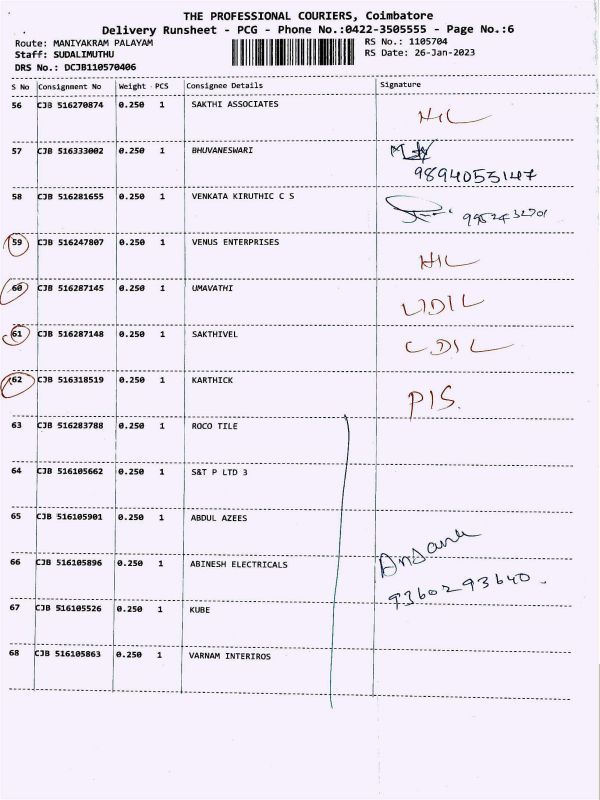 THE PROFESSIONAL COURIERS, Coimbatore
Delivery Runsheet - PCG - Phone No.:0422-3505555 - Page No.:6
Route: MANIYAKRAM PALAYAM RS No.: 1105704
Staff: SUDALIMUTHU RS Date: 26-Jan-2023
DRS No.: DCJB110570406
S No Consignment No Weight PCS Consignee Details Signature
56 CJB 516270874 0.250 1 SAKTHI ASSOCIATES
57 CJB 516333002 0.250 1 BHUVANESWARI
9894055147
58 CJB 516281655 0.250 1 VENKATA KIRUTHIC C S
59 CJB 516247807 0.250 1 VENUS ENTERPRISES
60 CJB 516287145 0.250 1 UMAVATHI
61 CJB 516287148 0.250 1 SAKTHIVEL
62 CJB 516318519 0.250 1 KARTHICK PIS.
63 CJB 516283788 0.250 1 ROCO TILE
64 CJB 516105662 0.250 1 S&T P LTD 3
65 CJB 516105901 0.250 1 ABDUL AZEES
66 CJB 516105896 0.250 1 ABINESH ELECTRICALS
9360293640.
67 CJB 516105526 0.250 1 KUBE
68 CJB 516105863 0.250 1 VARNAM INTERIROS